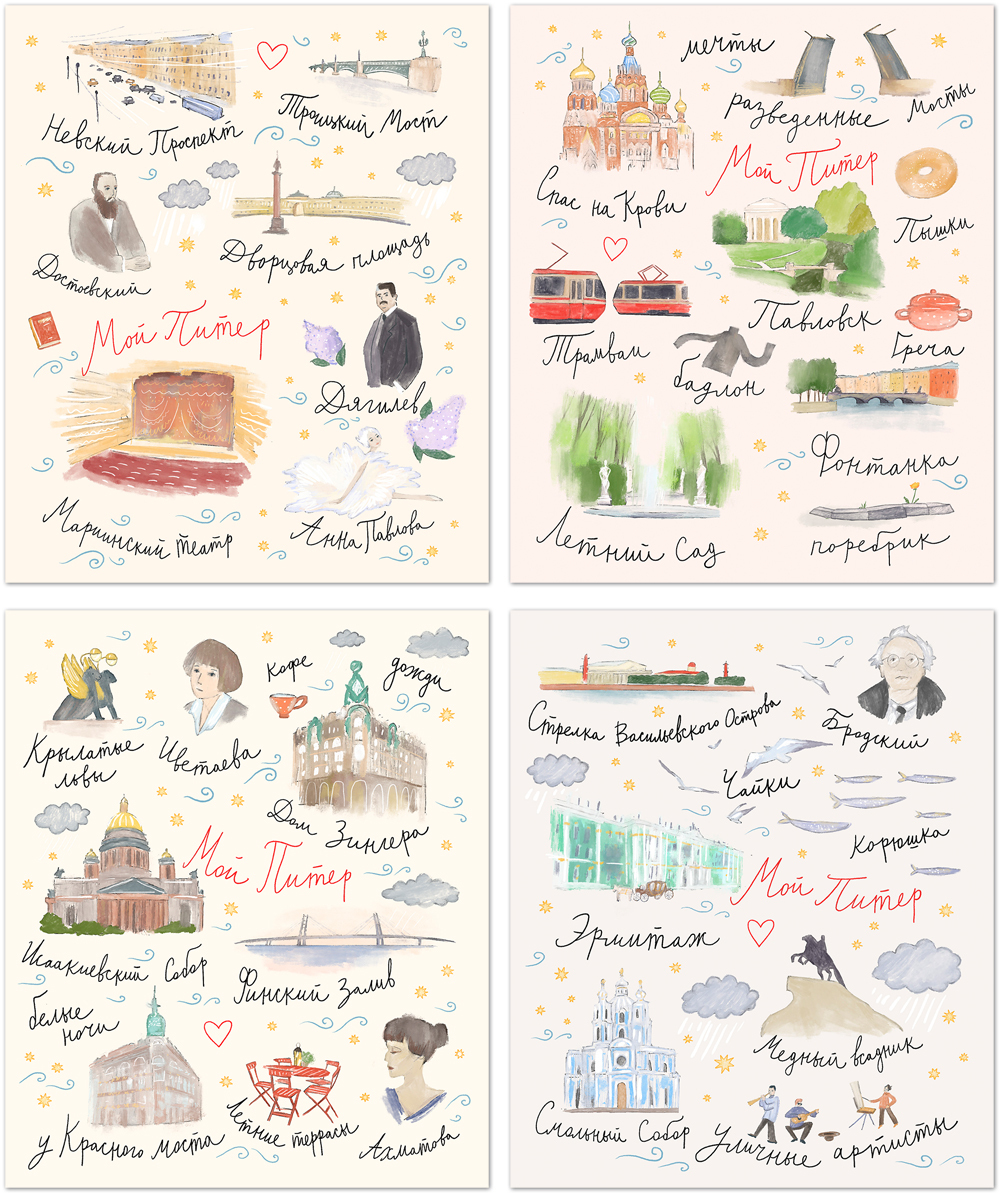 Невский Проспект
Троицкий Мост
Достоевский
Дворцовая площадь
Мой Питер
Дягилев
Мариинский театр
Анна Павлова
мечты
разведенные
Мосты
Спас на Крови
Мой Питер
Пышки
Трамваи
Павловск
бадлон
Греча
Фонтанка
Летний Сад
поребрик
Крылатые
львы
Цветаева
кофе
дожди
Дом Зингера
Мой Питер
Исаакиевский Собор
Финский Залив
белые
ночи
у Красного моста
Летние террасы
Ахматова
Стрелка Васильевского Острова
Бродский
Чайки
Корюшка
Мой Питер
Эрмитаж
Медный всадник
Смольный Собор
уличные артисты